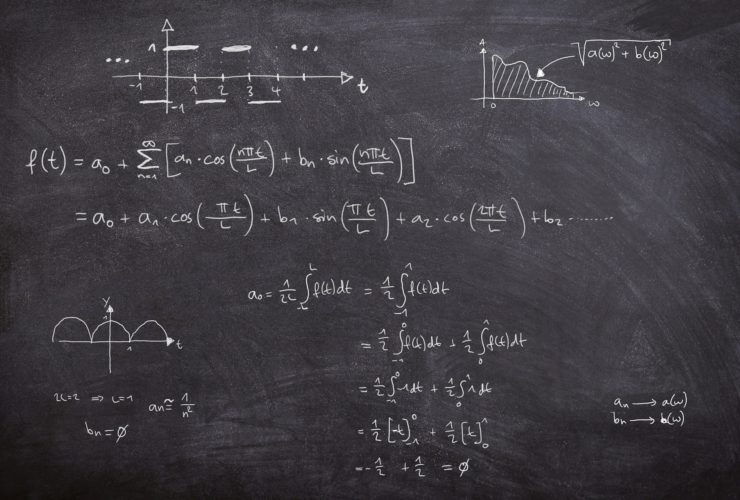 ... 1 ...
-1 1 2 3 4 t
-1
A √(a(ω)² + b(ω)²)
0 ω
f(t) = a₀ + ∑ₙ₌₁^∞ [aₙ·cos(nπt/L) + bₙ·sin(nπt/L)]
= a₀ + a₁·cos(πt/L) + b₁·sin(πt/L) + a₂·cos(2πt/L) + b₂ ........
a₀ = 1/2L ∫₋L^L f(t)dt = 1/2 ∫₋₁^1 f(t)dt
= 1/2 ∫₋₁^0 f(t)dt + 1/2 ∫₀^1 f(t)dt
= 1/2 ∫₋₁^0 -1dt + 1/2 ∫₀^1 1dt
= 1/2 [-t]₋₁^0 + 1/2 [t]₀^1
= -1/2 + 1/2 = ∅
y
1
1 t
2L=2 ⇒ L=1 aₙ ≅ 1/n²
bₙ = ∅
aₙ → a(ω)
bₙ → b(ω)